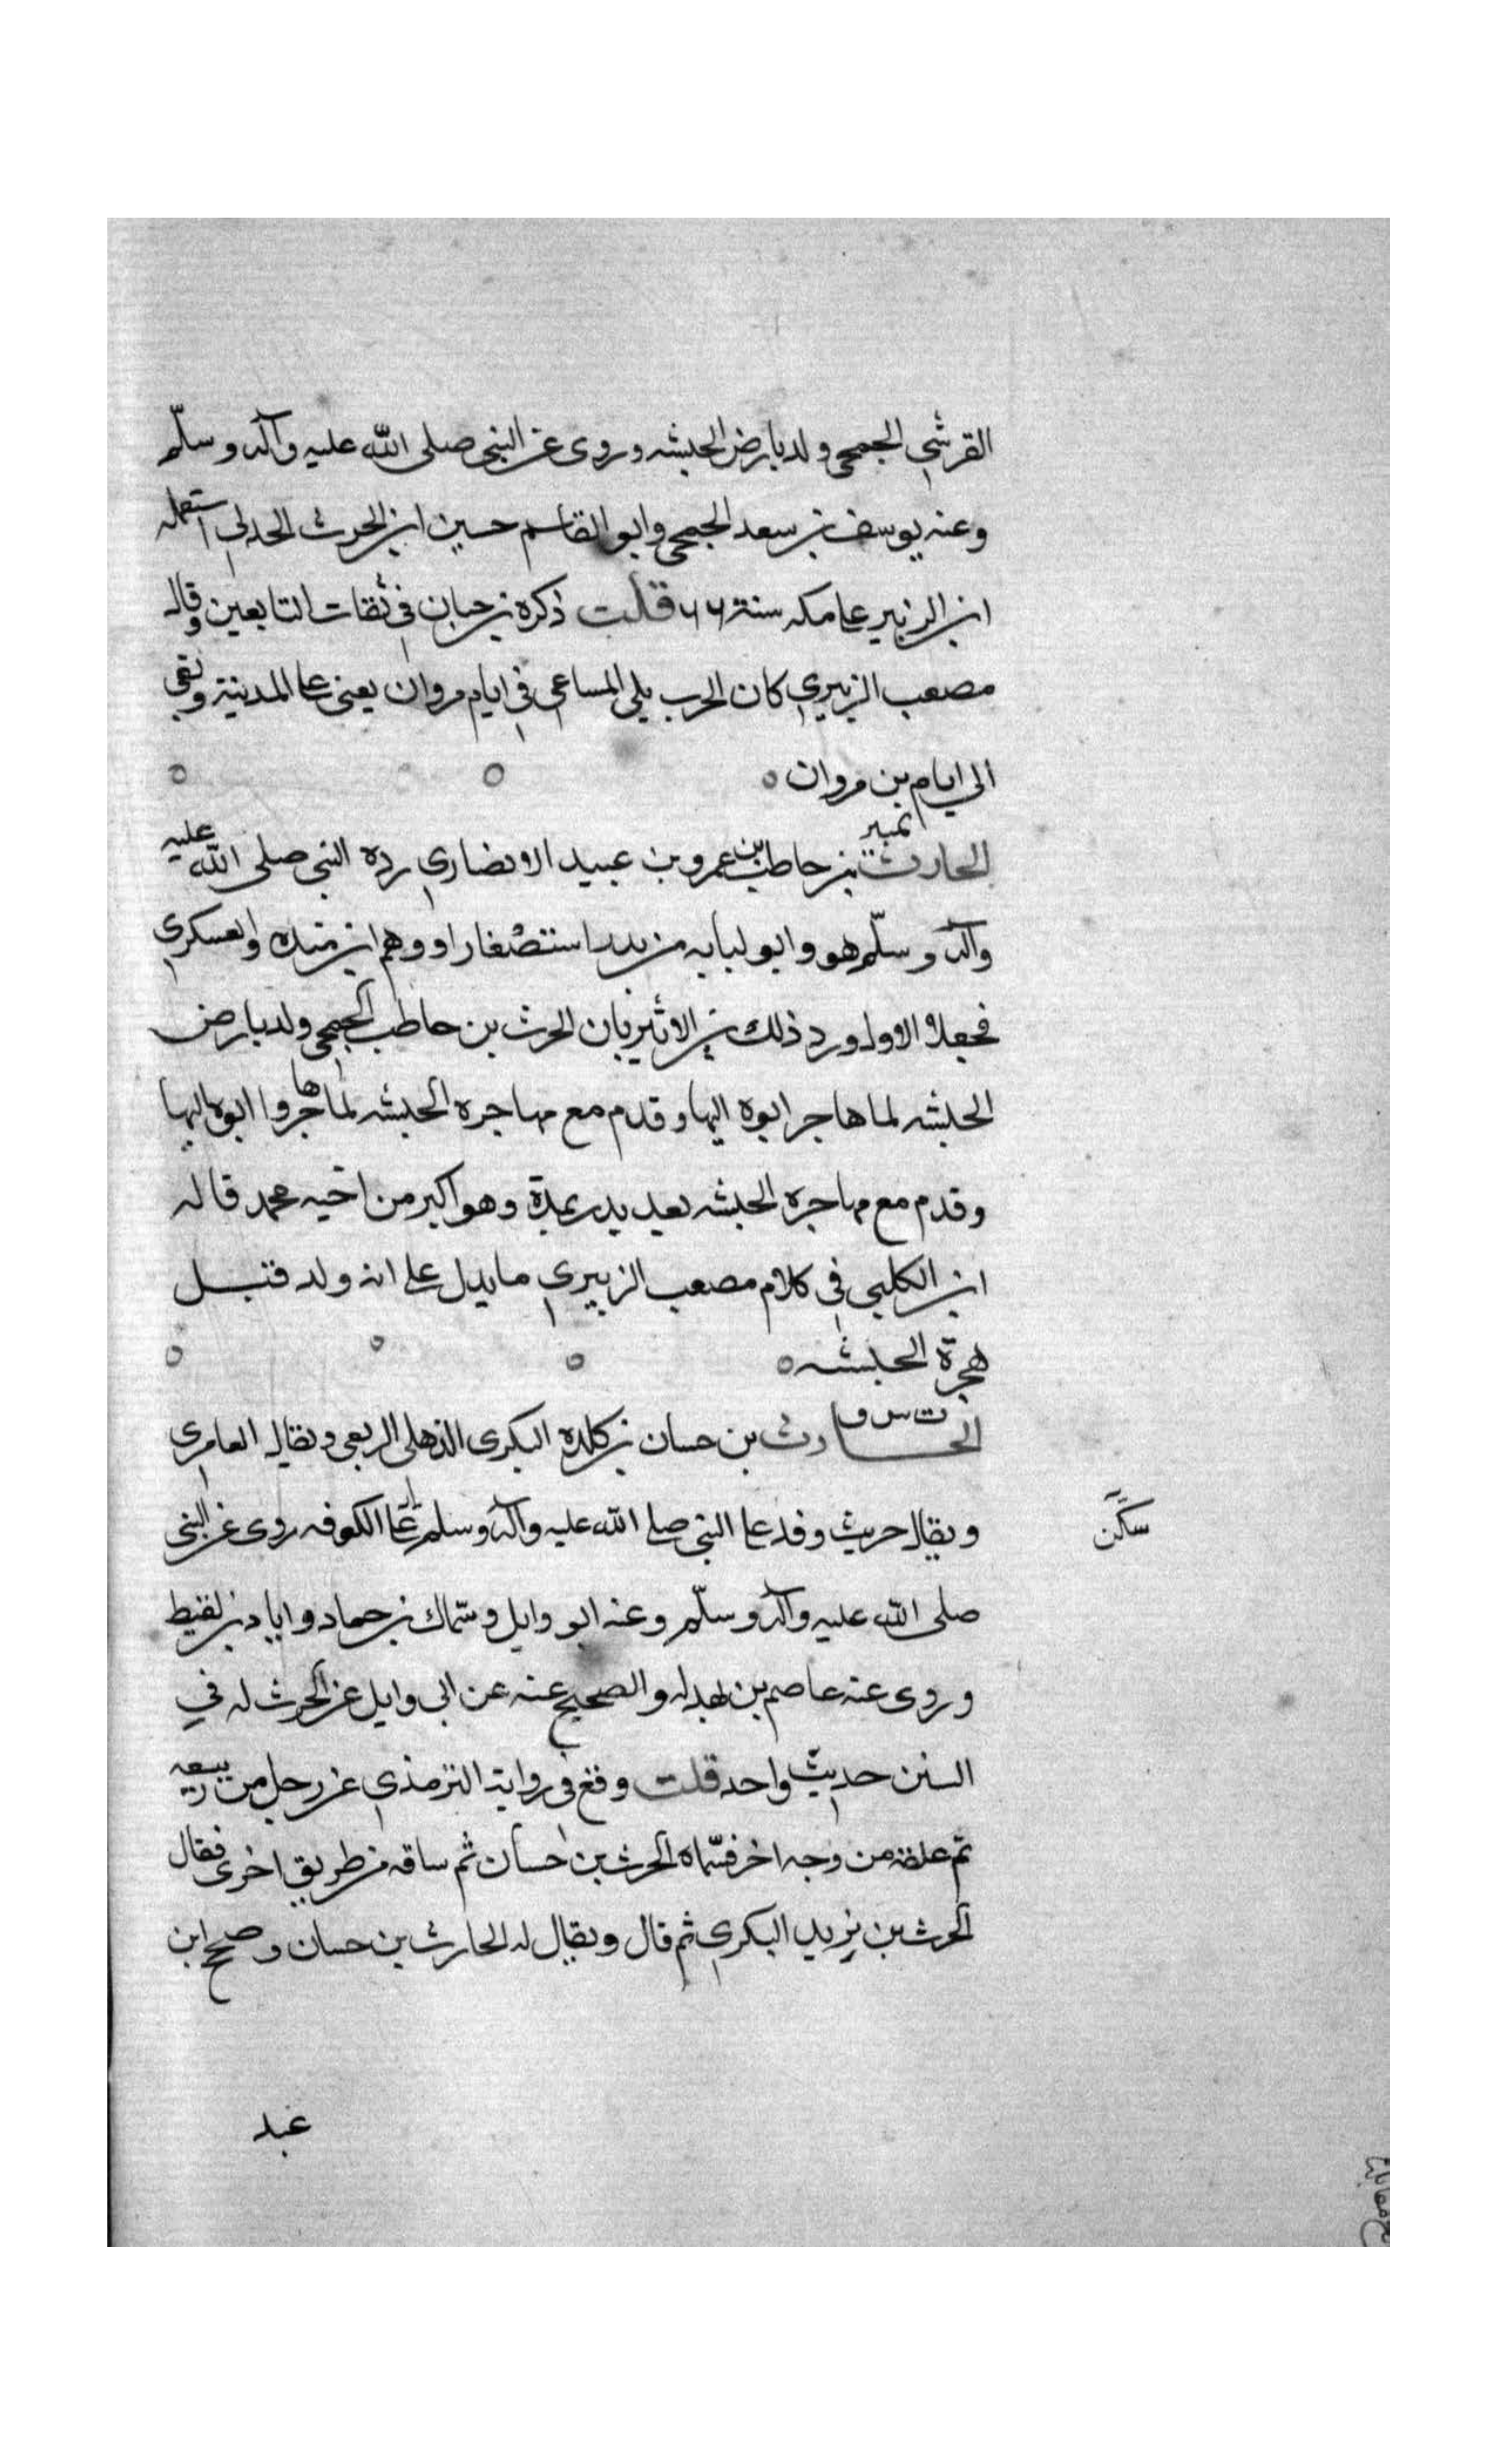 القرشي الجمحي ولد بارض الحبشه وروى عن النبي صلى الله عليه وآله وسلّم
وعنه يوسف بن سعد الجمحي وابو القاسم حسين ابن الحرث الجدلي استعمله
ابن الزبير على مكه سنة ٦٦ قلت ذكره بن حبان في ثقات التابعين وقال
مصعب الزبيري كان الحرب يلي المساعي في ايام مروان يعني على المدينة وبقي
الى ايام بن مروان ٥
تمييز
الحارث بن حاطب بن عمرو بن عبيد الانصاري رده النبي صلى الله عليه
وآله وسلّم هو وابو لبابه من بدر استصغارا ووهم ابن منده والعسكري
فجعلاه الاول ورد ذلك بن الاثير بان الحرث بن حاطب الجمحي ولد بارض
الحبشه لما هاجر ابوه اليها وقدم مع مهاجرة الحبشه لما هاجروا ابوه اليها
وقدم مع مهاجرة الحبشه بعد بدر بمدة وهو اكبر من اخيه محمد قاله
ابن الكلبي في كلام مصعب الزبيري ما يدل على انه ولد قبل
هجرة الحبشه ٥
ت س ق
الحارث بن حسان بن كلده البكري الذهلي الربعي ويقال العامري
ويقال حريث وفد على النبي صلى الله عليه وآله وسلم على الكوفه روى عن النبي
سكن
صلى الله عليه وآله وسلّم وعنه ابو وايل وسماك بن حماد واياد بن لقيط
وروى عنه عاصم بن بهدله والصحيح عنه عن ابي وايل عن الحرث له في
السنن حديث واحد قلت وقع في رواية الترمذي عن رجل من ربيعه
ثم علقه من وجه اخر فسّماه الحرث بن حسان ثم ساقه من طريق اخرى فقال
الحرث بن يزيد البكري ثم قال ويقال له الحارث بن حسان وصحح ابن
عبد